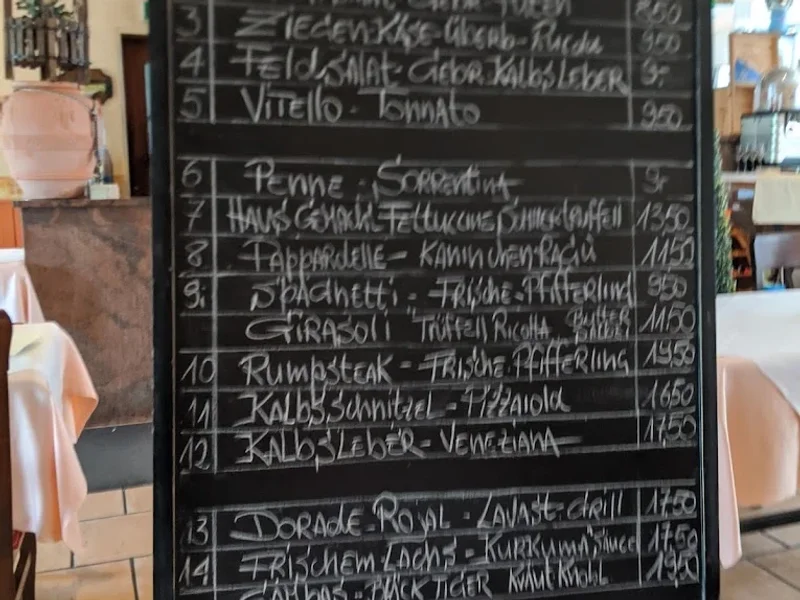 850
3 Ziegen-Käse-überb-Rucola 950
4 Feldsalat-Gebr. Kalbsleber 9.-
5 Vitello-Tonnato 950
6 Penne-Sorrentina 9.-
7 Haus Gemacht Fettuccine Sommertrüffell 1350
8 Pappardelle-Kaninchen Ragù 1150
9. Spaghetti-Frische-Pfifferling 950
Girasoli "Trüffell Ricotta Butter 1150
10 Rumpsteak-Frische-Pfifferling 1950
11 Kalbsschnitzel-Pizzaiola 1650
12 Kalbsleber-Veneziana 1750
13 Dorade-Royal-Lavast-Grill 1750
14 Frischem Lachs-Kurkuma "Sauce 1750
Black Tiger 1950